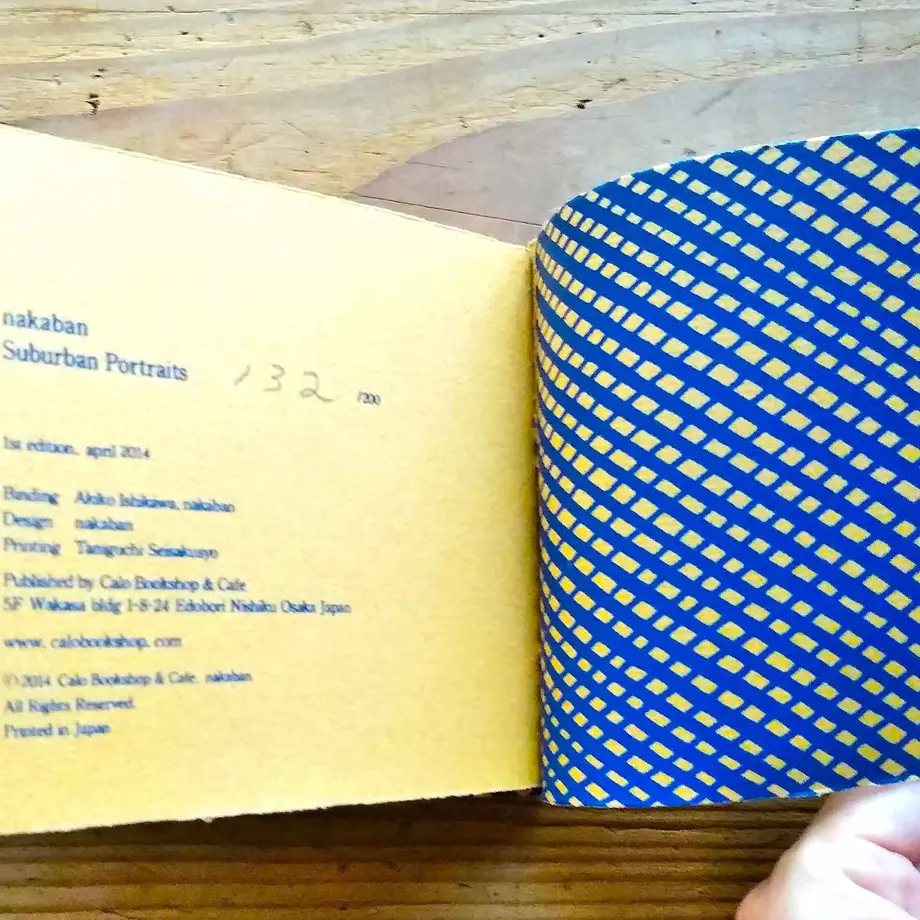 nakaban
Suburban Portraits 132 /200
1st edition, april 2014
Binding Akiko Ishikawa, nakaban
Design nakaban
Printing Taniguchi Seisakusyo
Published by Calo Bookshop & Cafe
5F Wakasa bldg 1-8-24 Edobori Nishiku Osaka Japan
www. calobookshop. com
©2014 Calo Bookshop & Cafe, nakaban
All Rights Reserved.
Printed in Japan